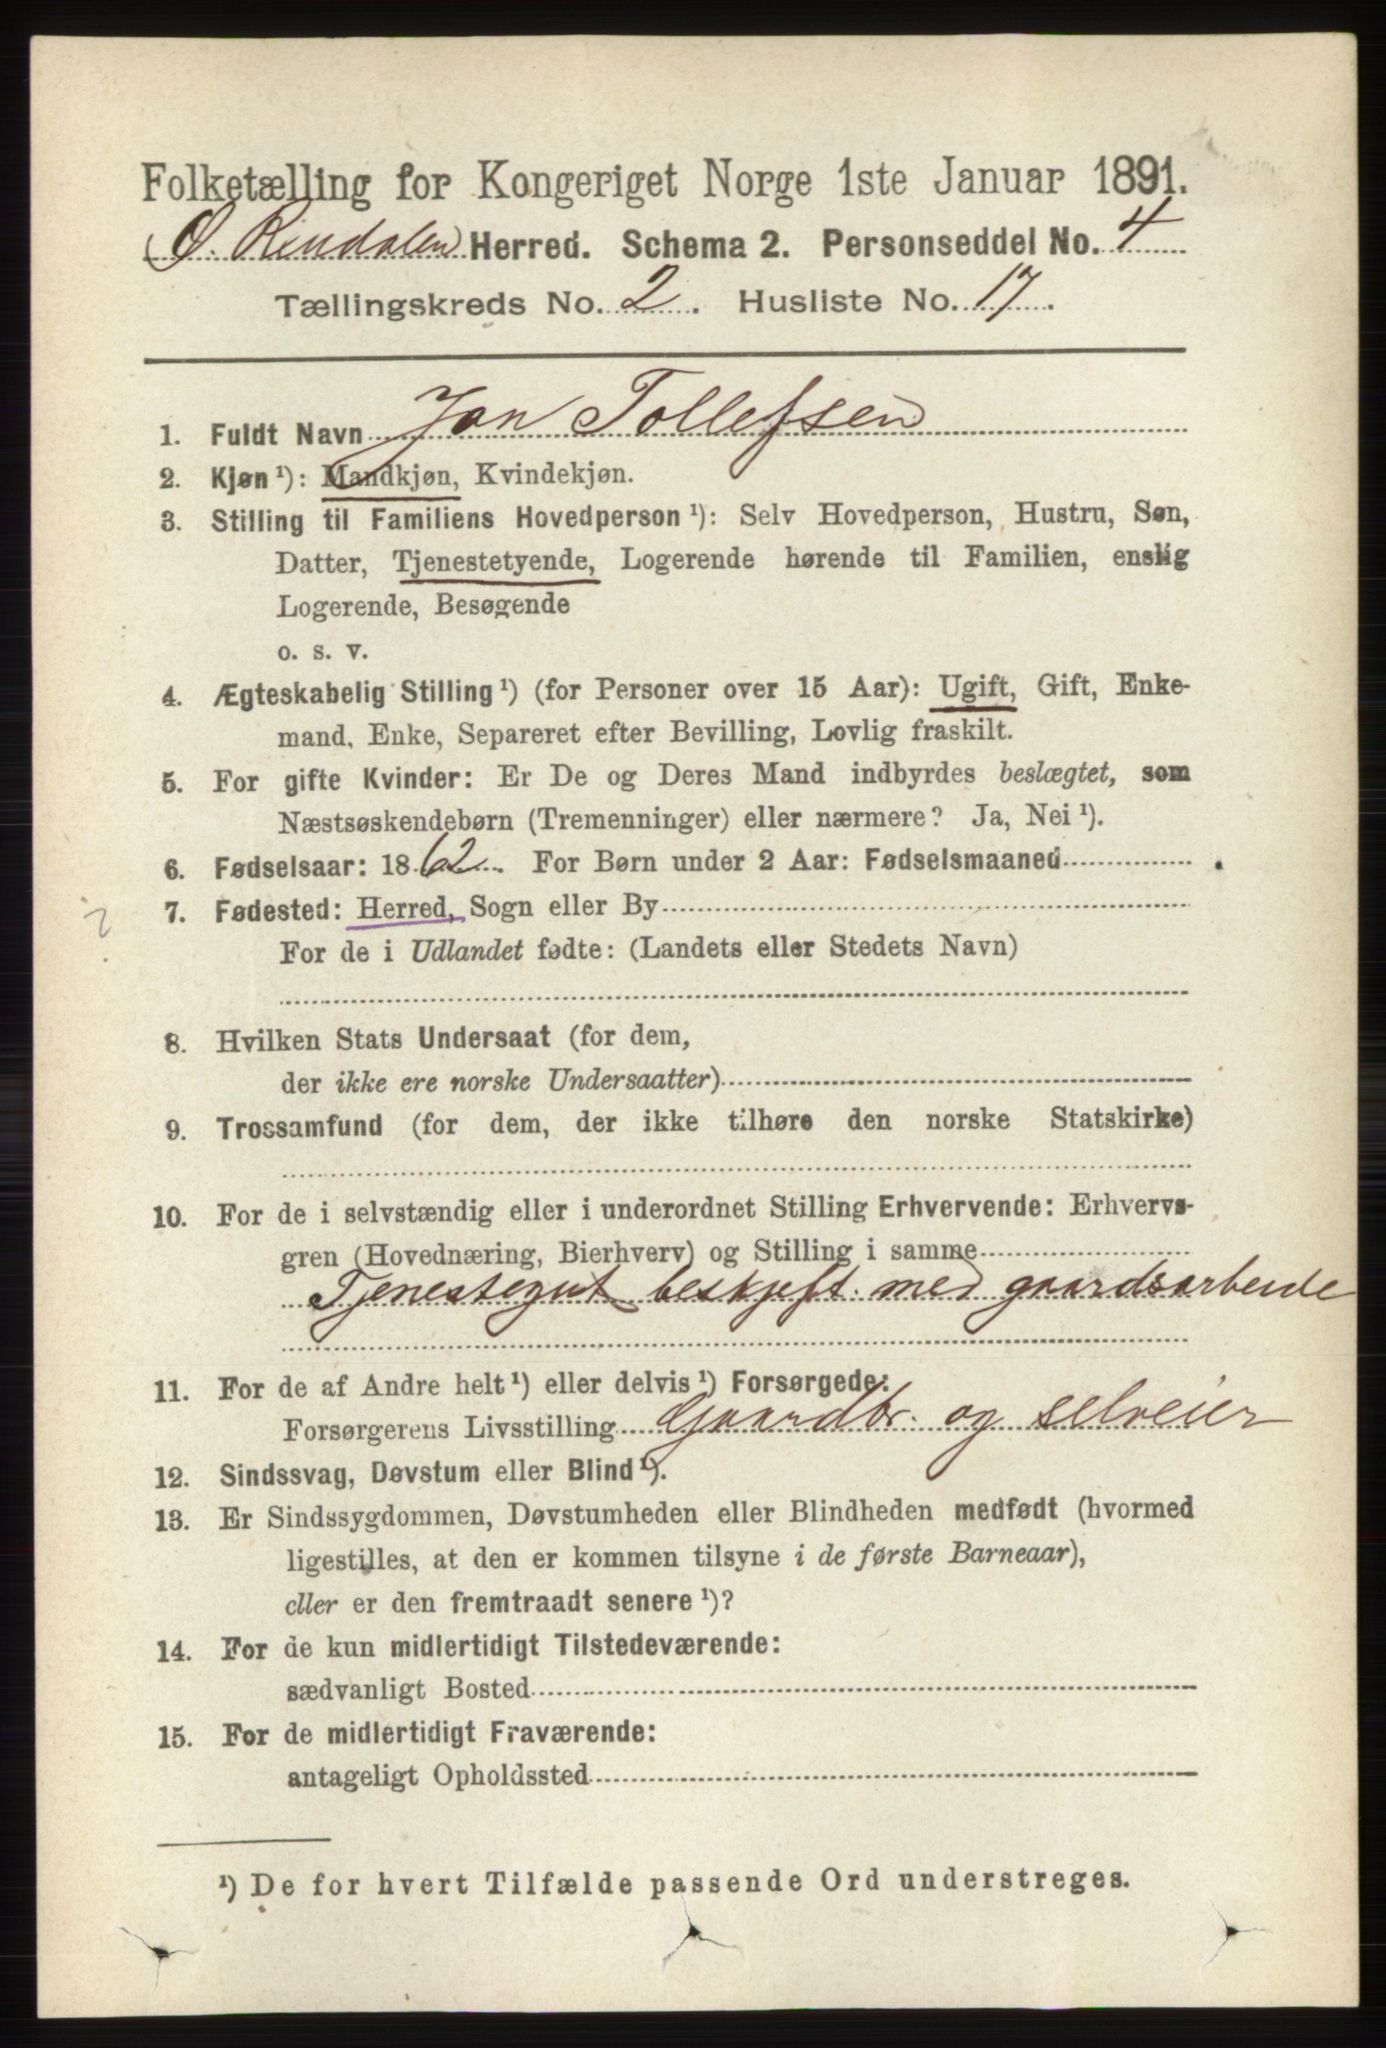 Folketælling for Kongeriget Norge 1ste Januar 1891.
Ø. Rendalen Herred. Schema 2. Personseddel No. 4
Tællingskreds No. 2. Husliste No. 17.
1. Fuldt Navn Jon Tollefsen
2. Kjøn ¹): Mandkjøn, Kvindekjøn.
3. Stilling til Familiens Hovedperson ¹): Selv Hovedperson, Hustru, Søn,
Datter, Tjenestetyende, Logerende hørende til Familien, enslig
Logerende, Besøgende
o. s. v.
4. Ægteskabelig Stilling ¹) (for Personer over 15 Aar): Ugift, Gift, Enke-
mand, Enke, Separeret efter Bevilling, Lovlig fraskilt.
5. For gifte Kvinder: Er De og Deres Mand indbyrdes beslægtet, som
Næstsøskendebørn (Tremenninger) eller nærmere? Ja, Nei ¹).
6. Fødselsaar: 1862. For Børn under 2 Aar: Fødselsmaaned
? 7. Fødested: Herred, Sogn eller By
For de i Udlandet fødte: (Landets eller Stedets Navn)
8. Hvilken Stats Undersaat (for dem,
der ikke ere norske Undersaatter)
9. Trossamfund (for dem, der ikke tilhøre den norske Statskirke)
10. For de i selvstændig eller i underordnet Stilling Erhvervende: Erhvervs-
gren (Hovednæring, Bierhverv) og Stilling i samme
Tjenestegut beskjeft. med gaardsarbeide
11. For de af Andre helt ¹) eller delvis ¹) Forsørgede:
Forsørgerens Livsstilling Gaardbr. og selveier
12. Sindssvag, Døvstum eller Blind ¹).
13. Er Sindssygdommen, Døvstumheden eller Blindheden medfødt (hvormed
ligestilles, at den er kommen tilsyne i de første Barneaar),
eller er den fremtraadt senere ¹)?
14. For de kun midlertidigt Tilstedeværende:
sædvanligt Bosted
15. For de midlertidigt Fraværende:
antageligt Opholdssted
¹) De for hvert Tilfælde passende Ord understreges.